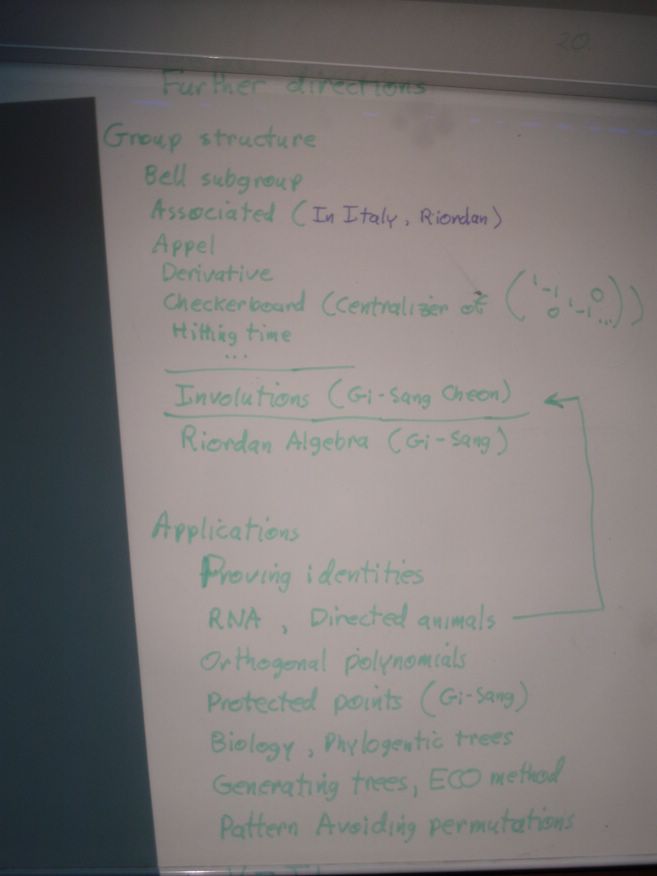 20.
Further directions
Group structure
Bell subgroup
Associated (In Italy, Riordan)
Appel
Derivative
Checkerboard (Centralizer of (1 -1 0 0 1 -1 ...))
Hitting time
...
Involutions (Gi-Sang Cheon)
Riordan Algebra (Gi-Sang)
Applications
Proving identities
RNA, Directed animals
Orthogonal polynomials
Protected points (Gi-Sang)
Biology, Phylogentic trees
Generating trees, ECO method
Pattern Avoiding permutations